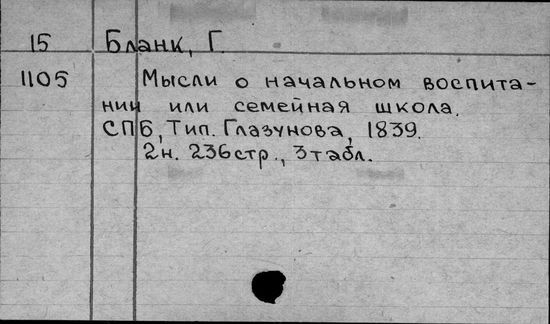 15 Бланк, Г.
1105 Мысли о начальном воспита-
нии или семейная школа.
СПБ, Тип. Глазунова, 1839.
2н. 236стр., 3табл.